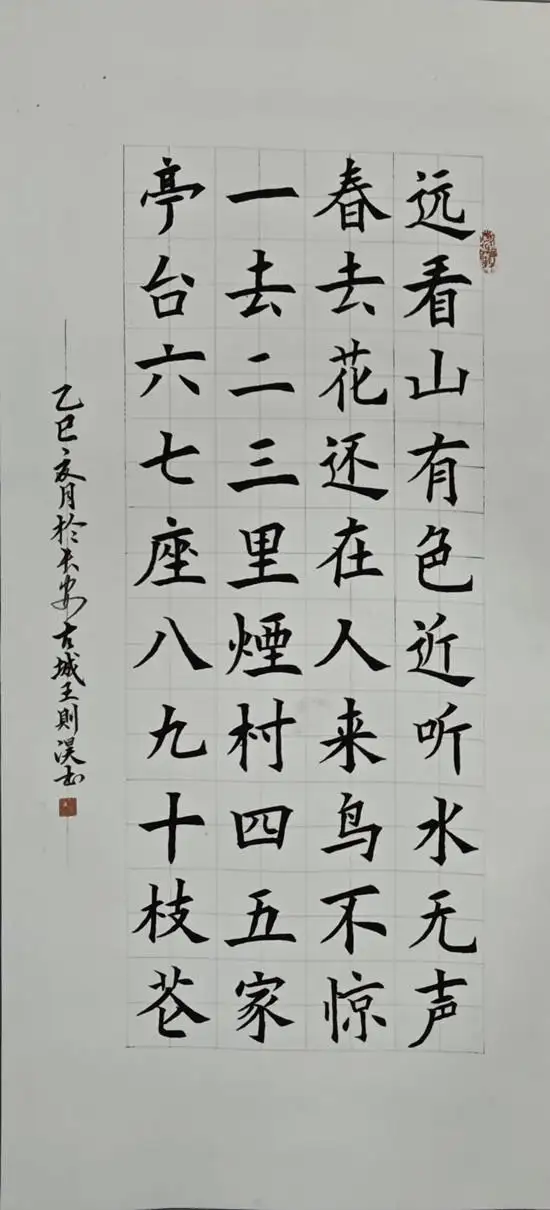 远看山有色近听水无声
春去花还在人来鸟不惊
一去二三里煙村四五家
亭台六七座八九十枝芲
乙巳亥月於长安古城王則淏书